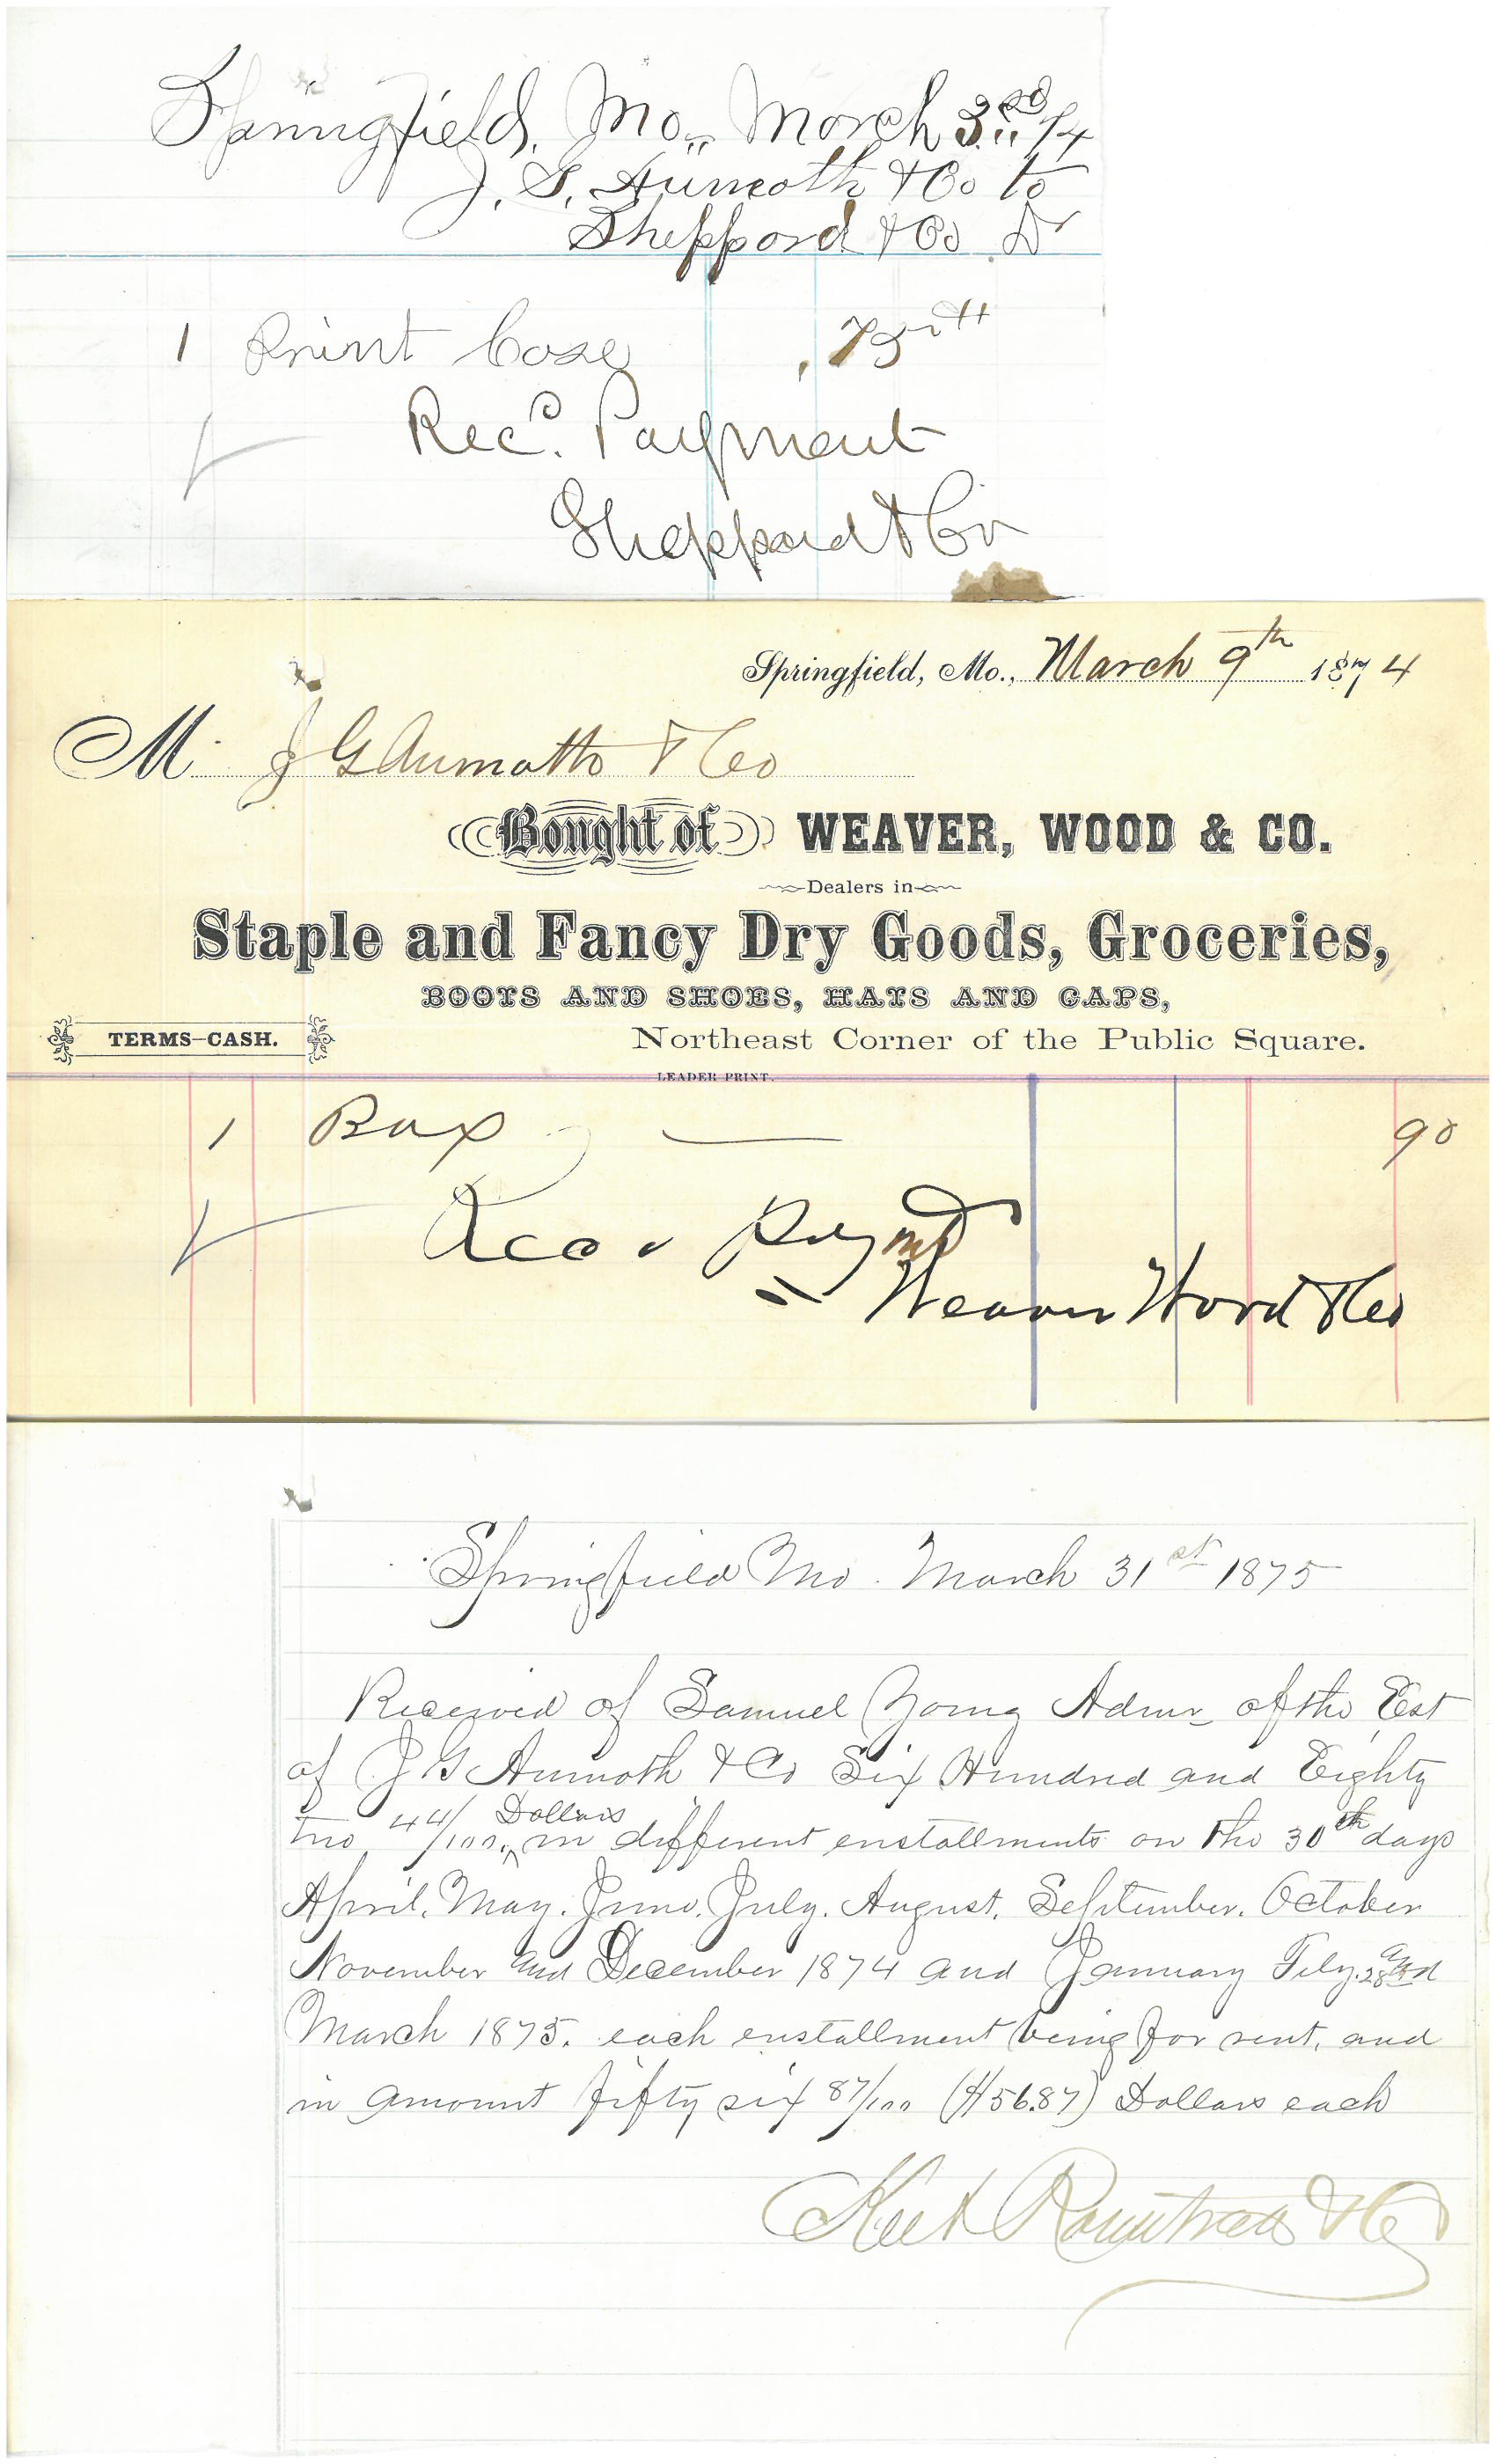 Springfield, Mo., March 3rd /74
J. G. Aumoth & Co to
Sheppard & Co Dr
1 Print Case .75
Recd. Payment
Sheppard & Co
Springfield, Mo., March 9th 1874
M. J G Aumoth & Co
Bought of WEAVER, WOOD & CO.
Dealers in
Staple and Fancy Dry Goods, Groceries,
BOOTS AND SHOES, HATS AND CAPS,
TERMS-CASH. Northeast Corner of the Public Square.
LEADER PRINT.
1 Box 90
Weaver Wood & Co
Springfield Mo. March 31st 1875
Received of Samuel Young Admr of the Est
of J G Aumoth & Co Six Hundred and Eighty
two 44/100 Dollars in different enstallments on the 30th days
April. May. June. July. August. September. October
November and December 1874 and January Feby. 28 and
March 1875. each enstallment being for rent, and
in amount fifty six 87/100 ($56.87) Dollars each
Keet Rountree & Co